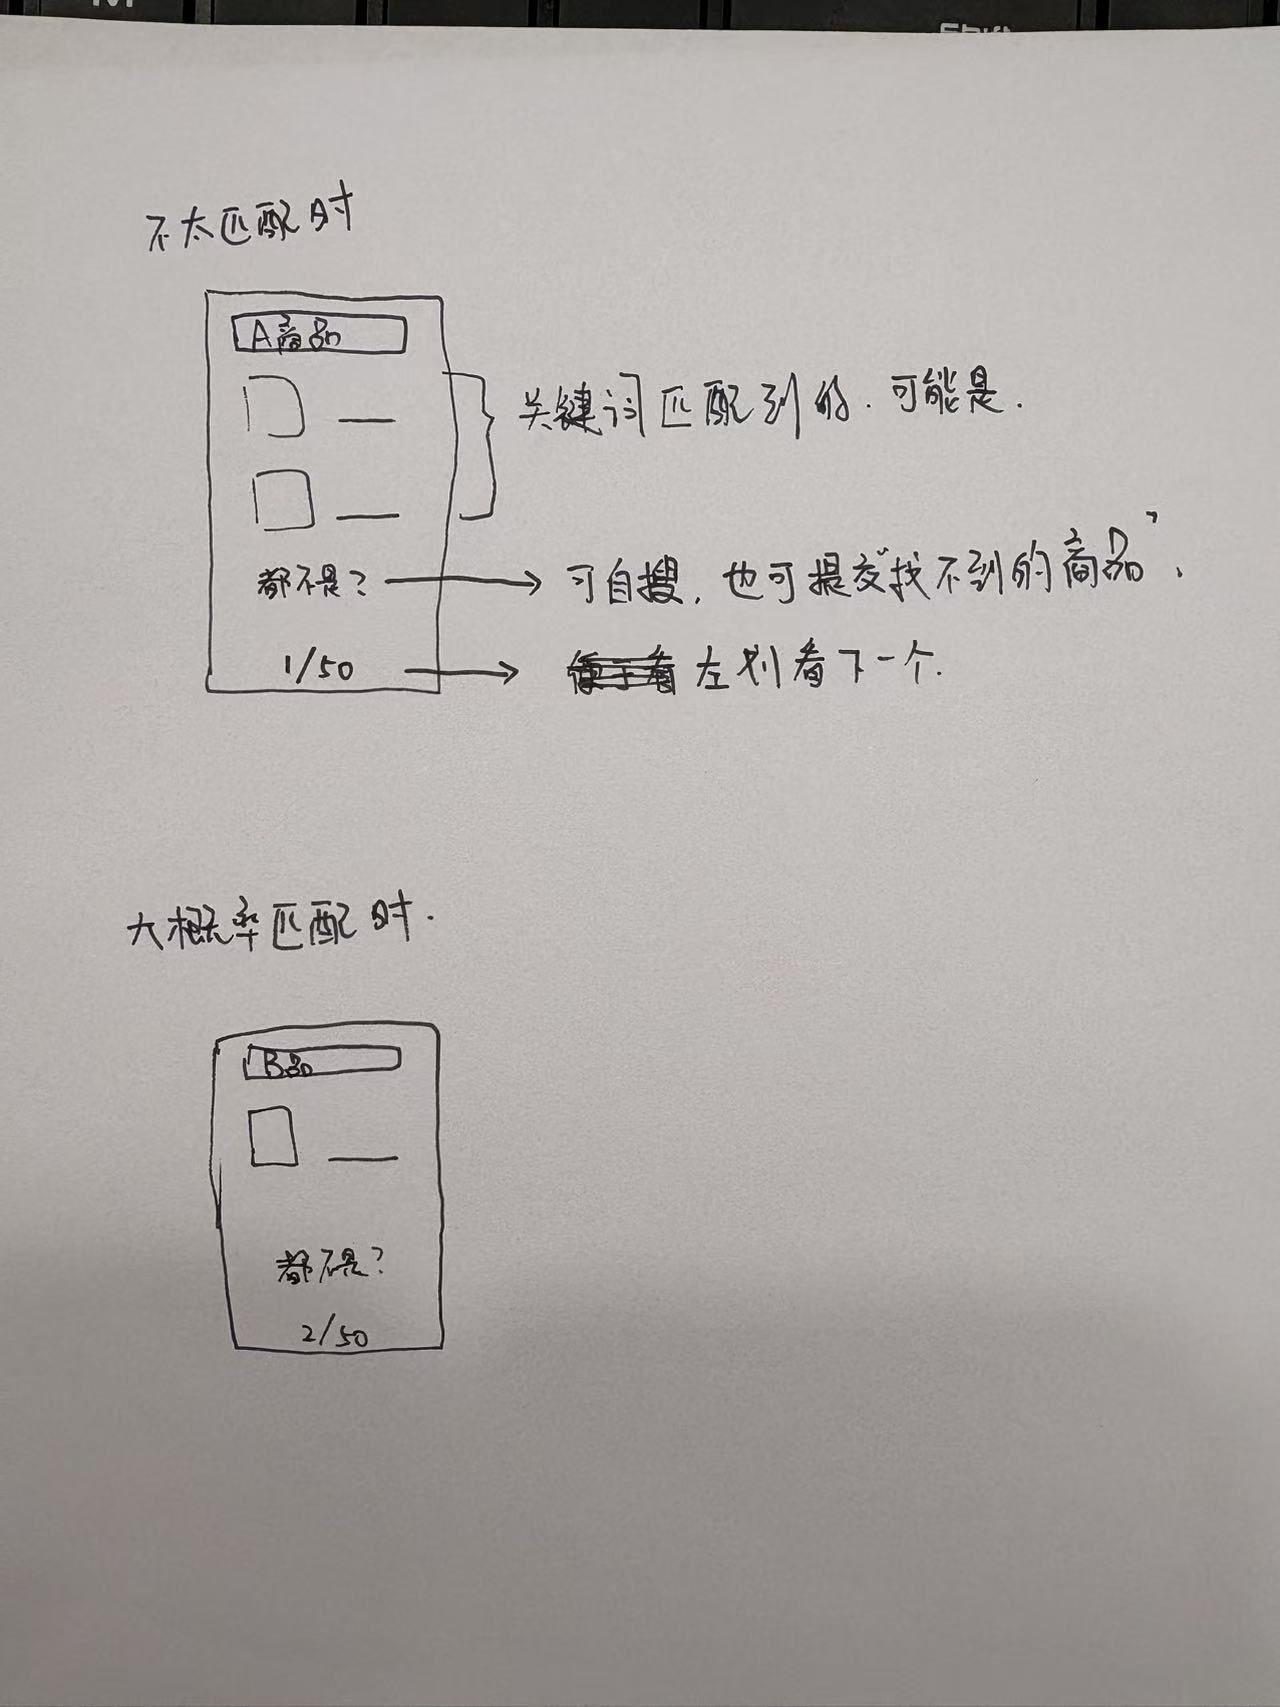 不太匹配时
A商品
关键词匹配到的.可能是.
都不是?
可自搜,也可提交"找不到的商品".
1/50
左划看下一个.
大概率匹配时.
B品
都不是?
2/50